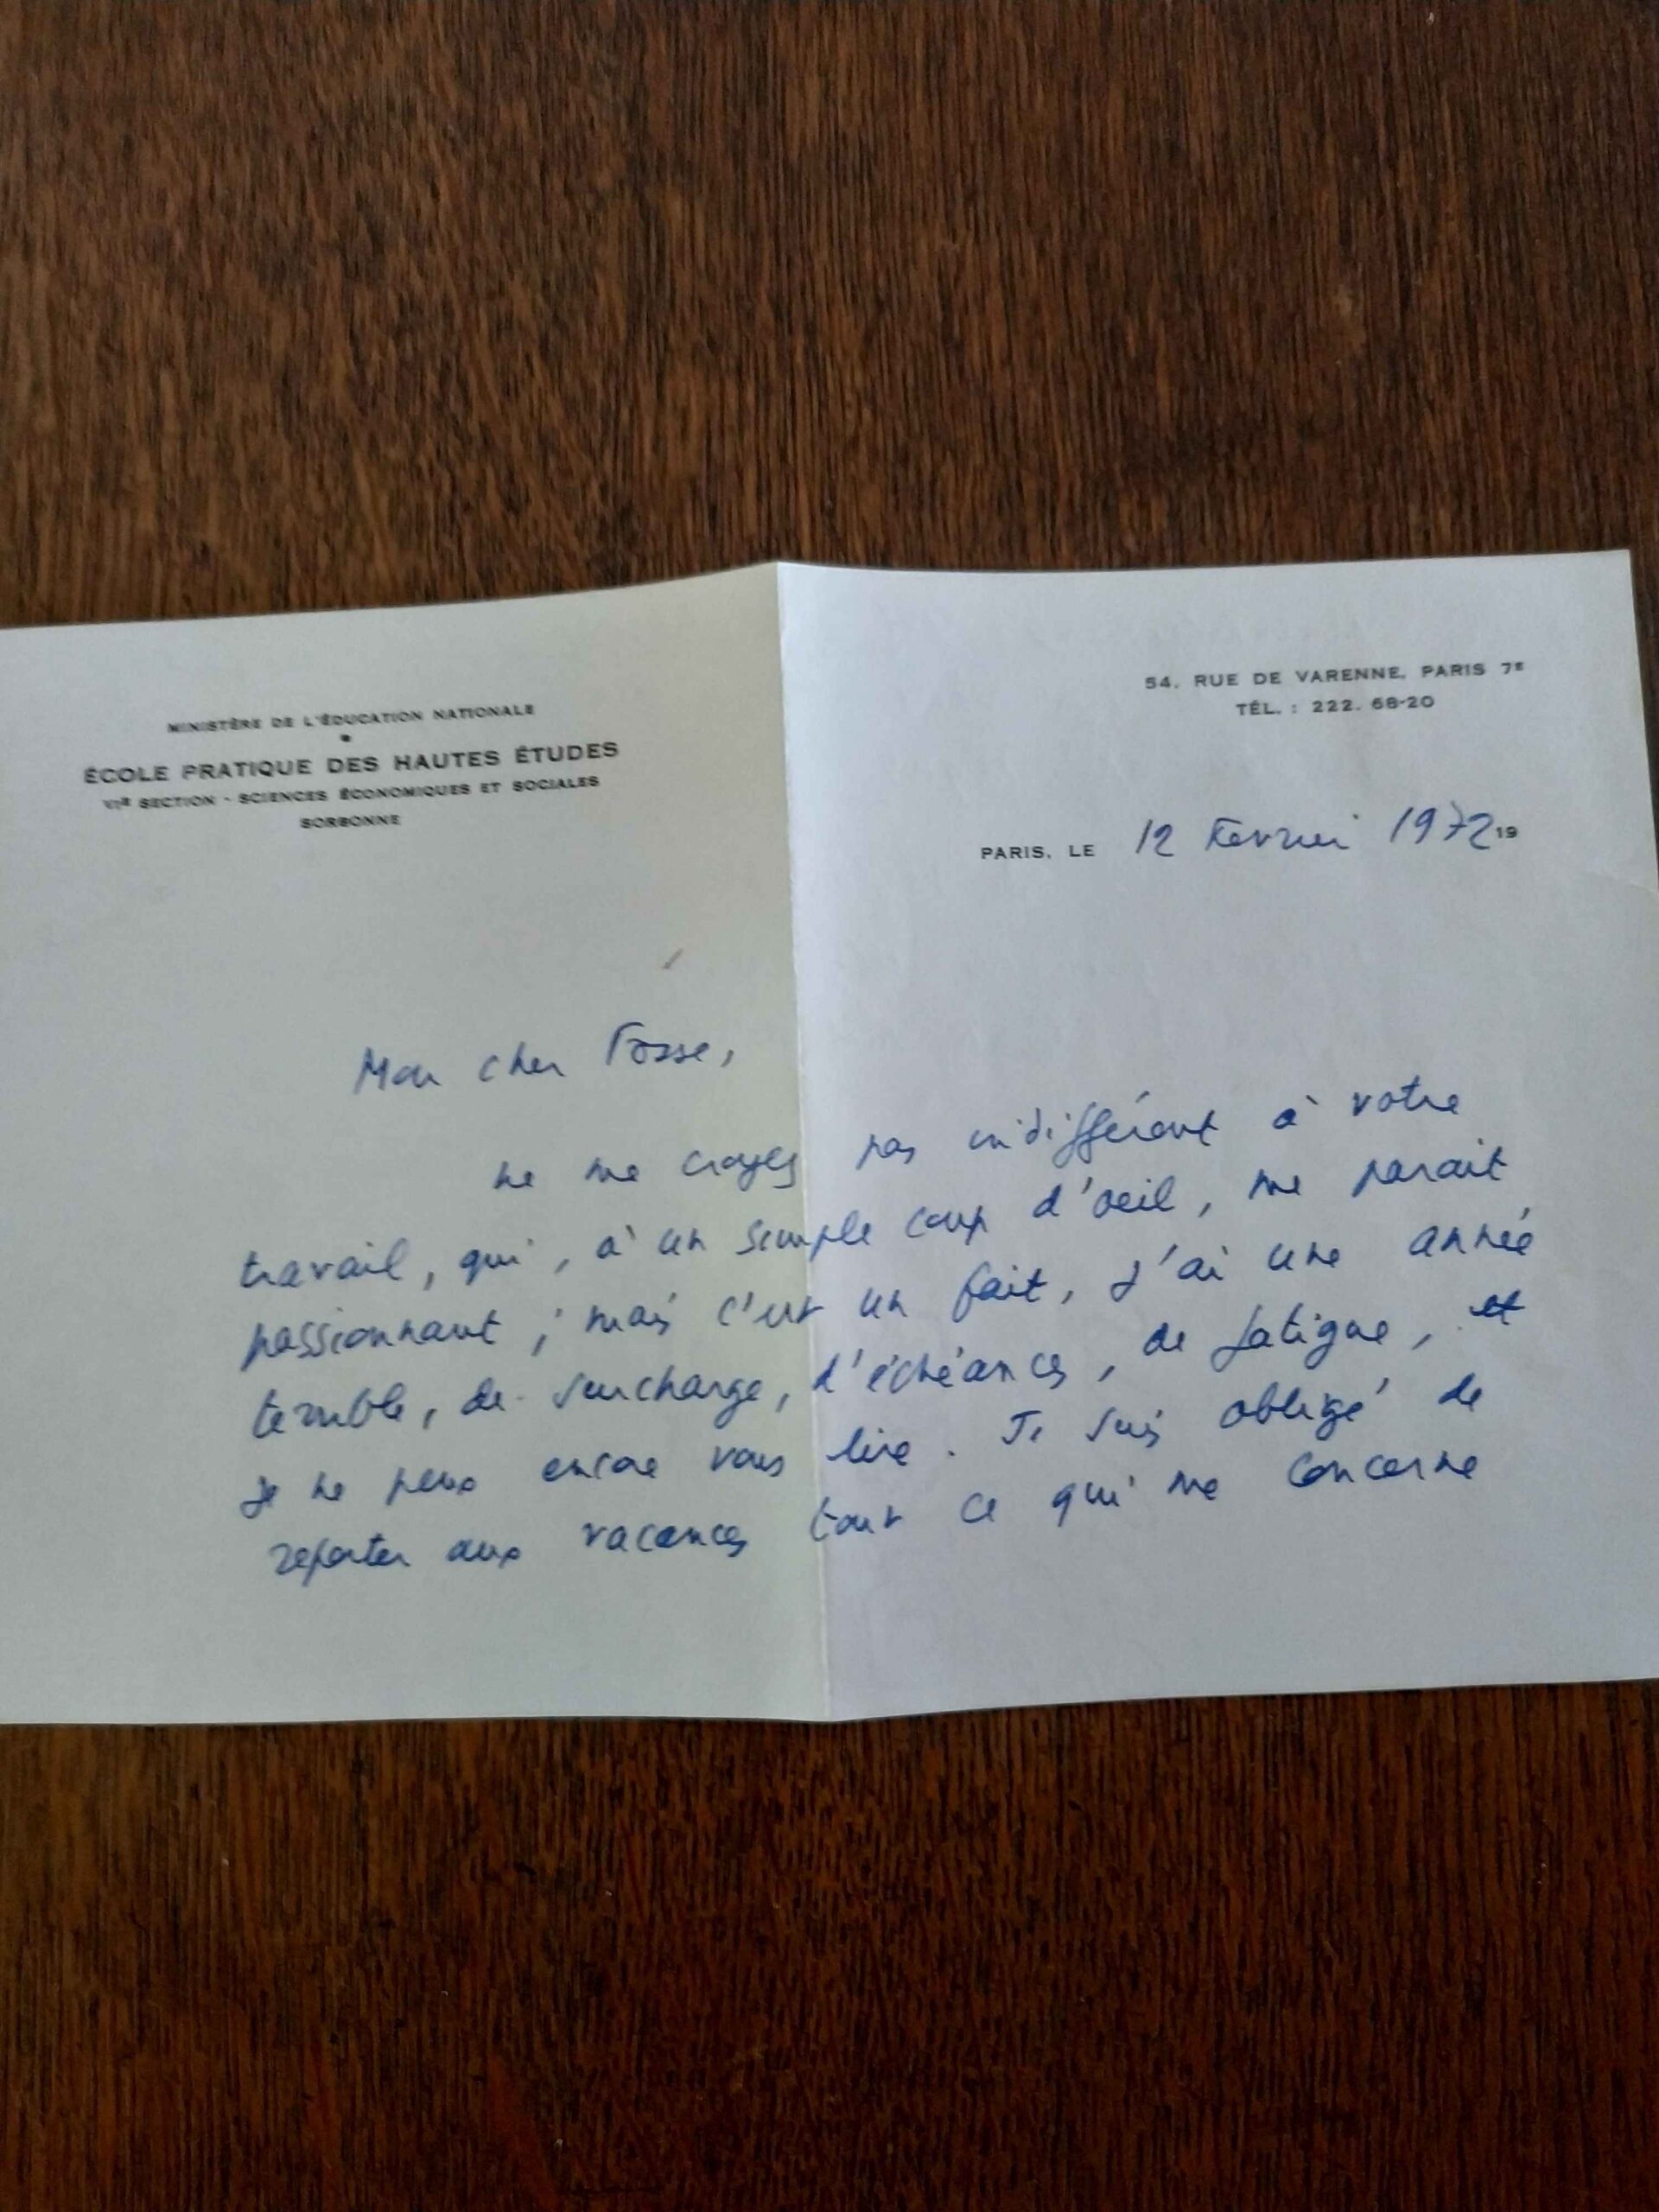 MINISTÈRE DE L'ÉDUCATION NATIONALE
ÉCOLE PRATIQUE DES HAUTES ÉTUDES
VIE SECTION - SCIENCES ÉCONOMIQUES ET SOCIALES
SORBONNE
54, RUE DE VARENNE, PARIS 7E
TÉL. : 222. 68-20
PARIS, LE 12 Février 1972 19
Mon cher Fosse,
ne me croyez pas indifférent à votre
travail, qui, à un simple coup d'oeil, me parait
passionnant ; mais c'est un fait, j'ai une année
terrible, de surcharge, d'échéances, de fatigue, et
je ne peux encore vous lire. Je suis obligé de
reporter aux vacances tout ce qui me concerne